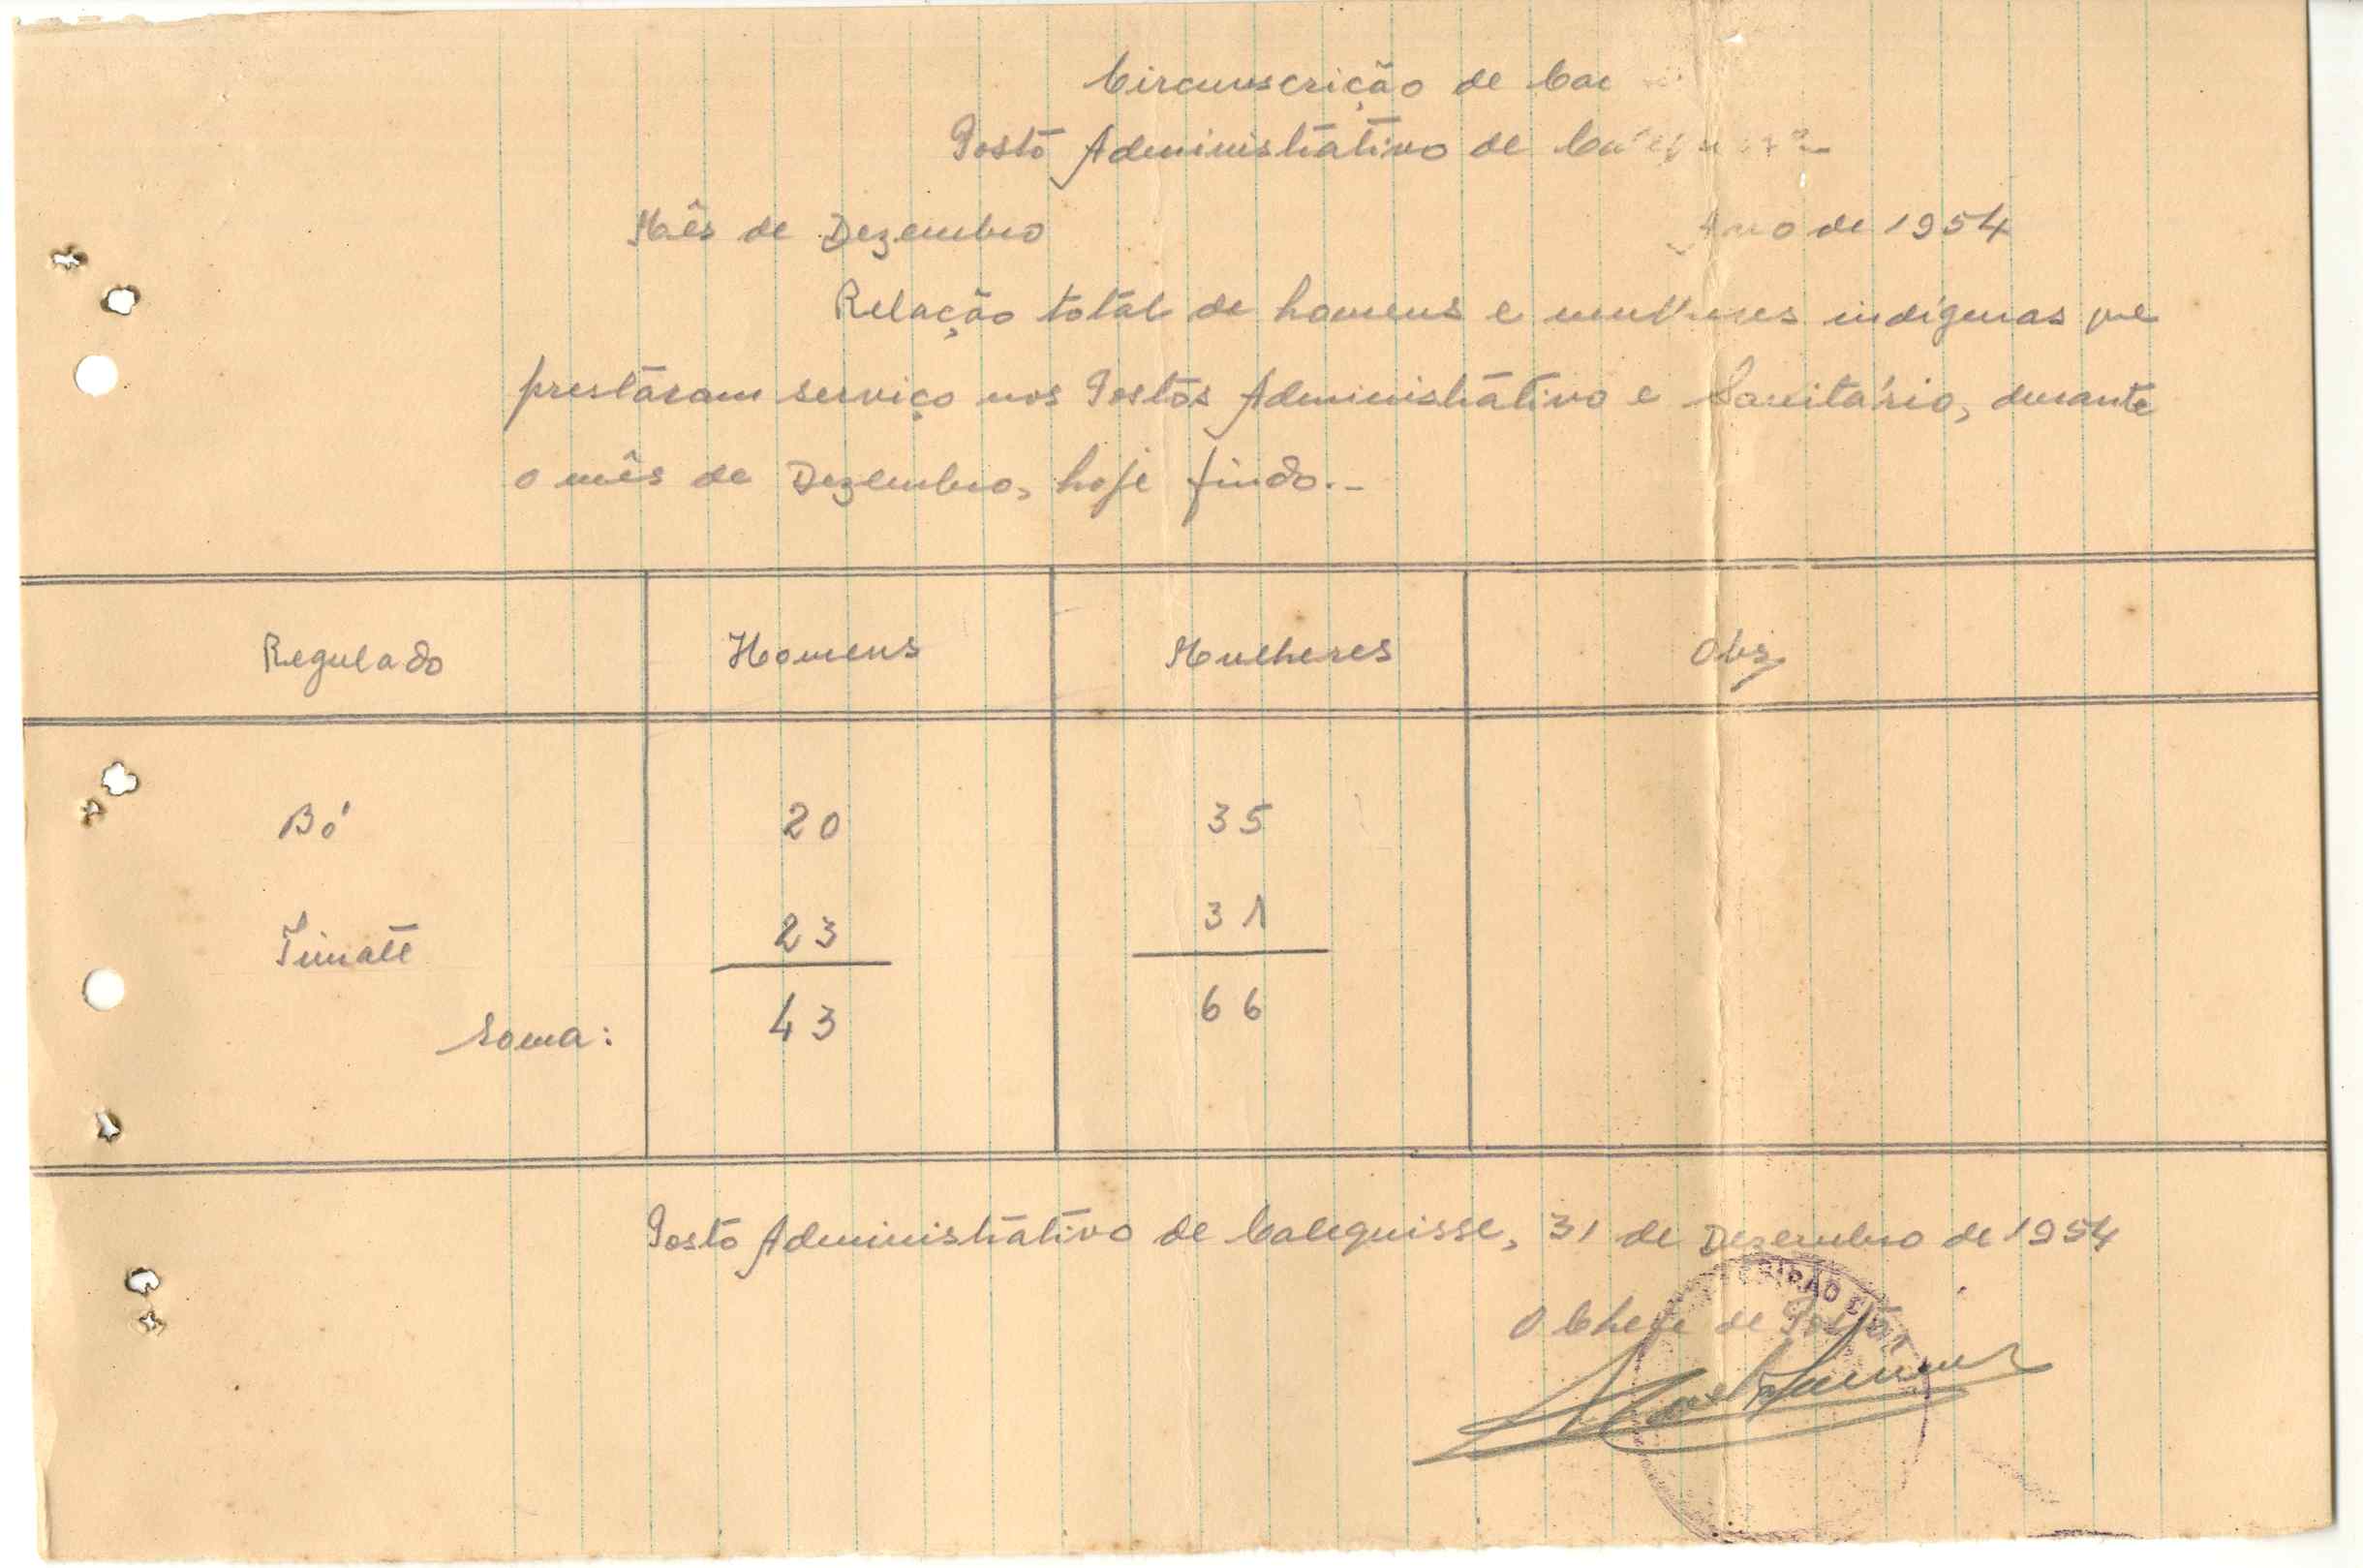 Circunscrição de Cac
Posto Administrativo de
Mês de Dezembro Ano de 1954
Relação total de homens e mulheres indígenas que
prestaram serviço nos Postos Administrativo e Sanitário, durante
o mês de Dezembro, hoje findo.-
Regulado Homens Mulheres Obs
Bó 20 35
Timate 23 31
Soma: 43 66
Posto Administrativo de Calequisse, 31 de Dezembro de 1954
O Chefe de Posto,